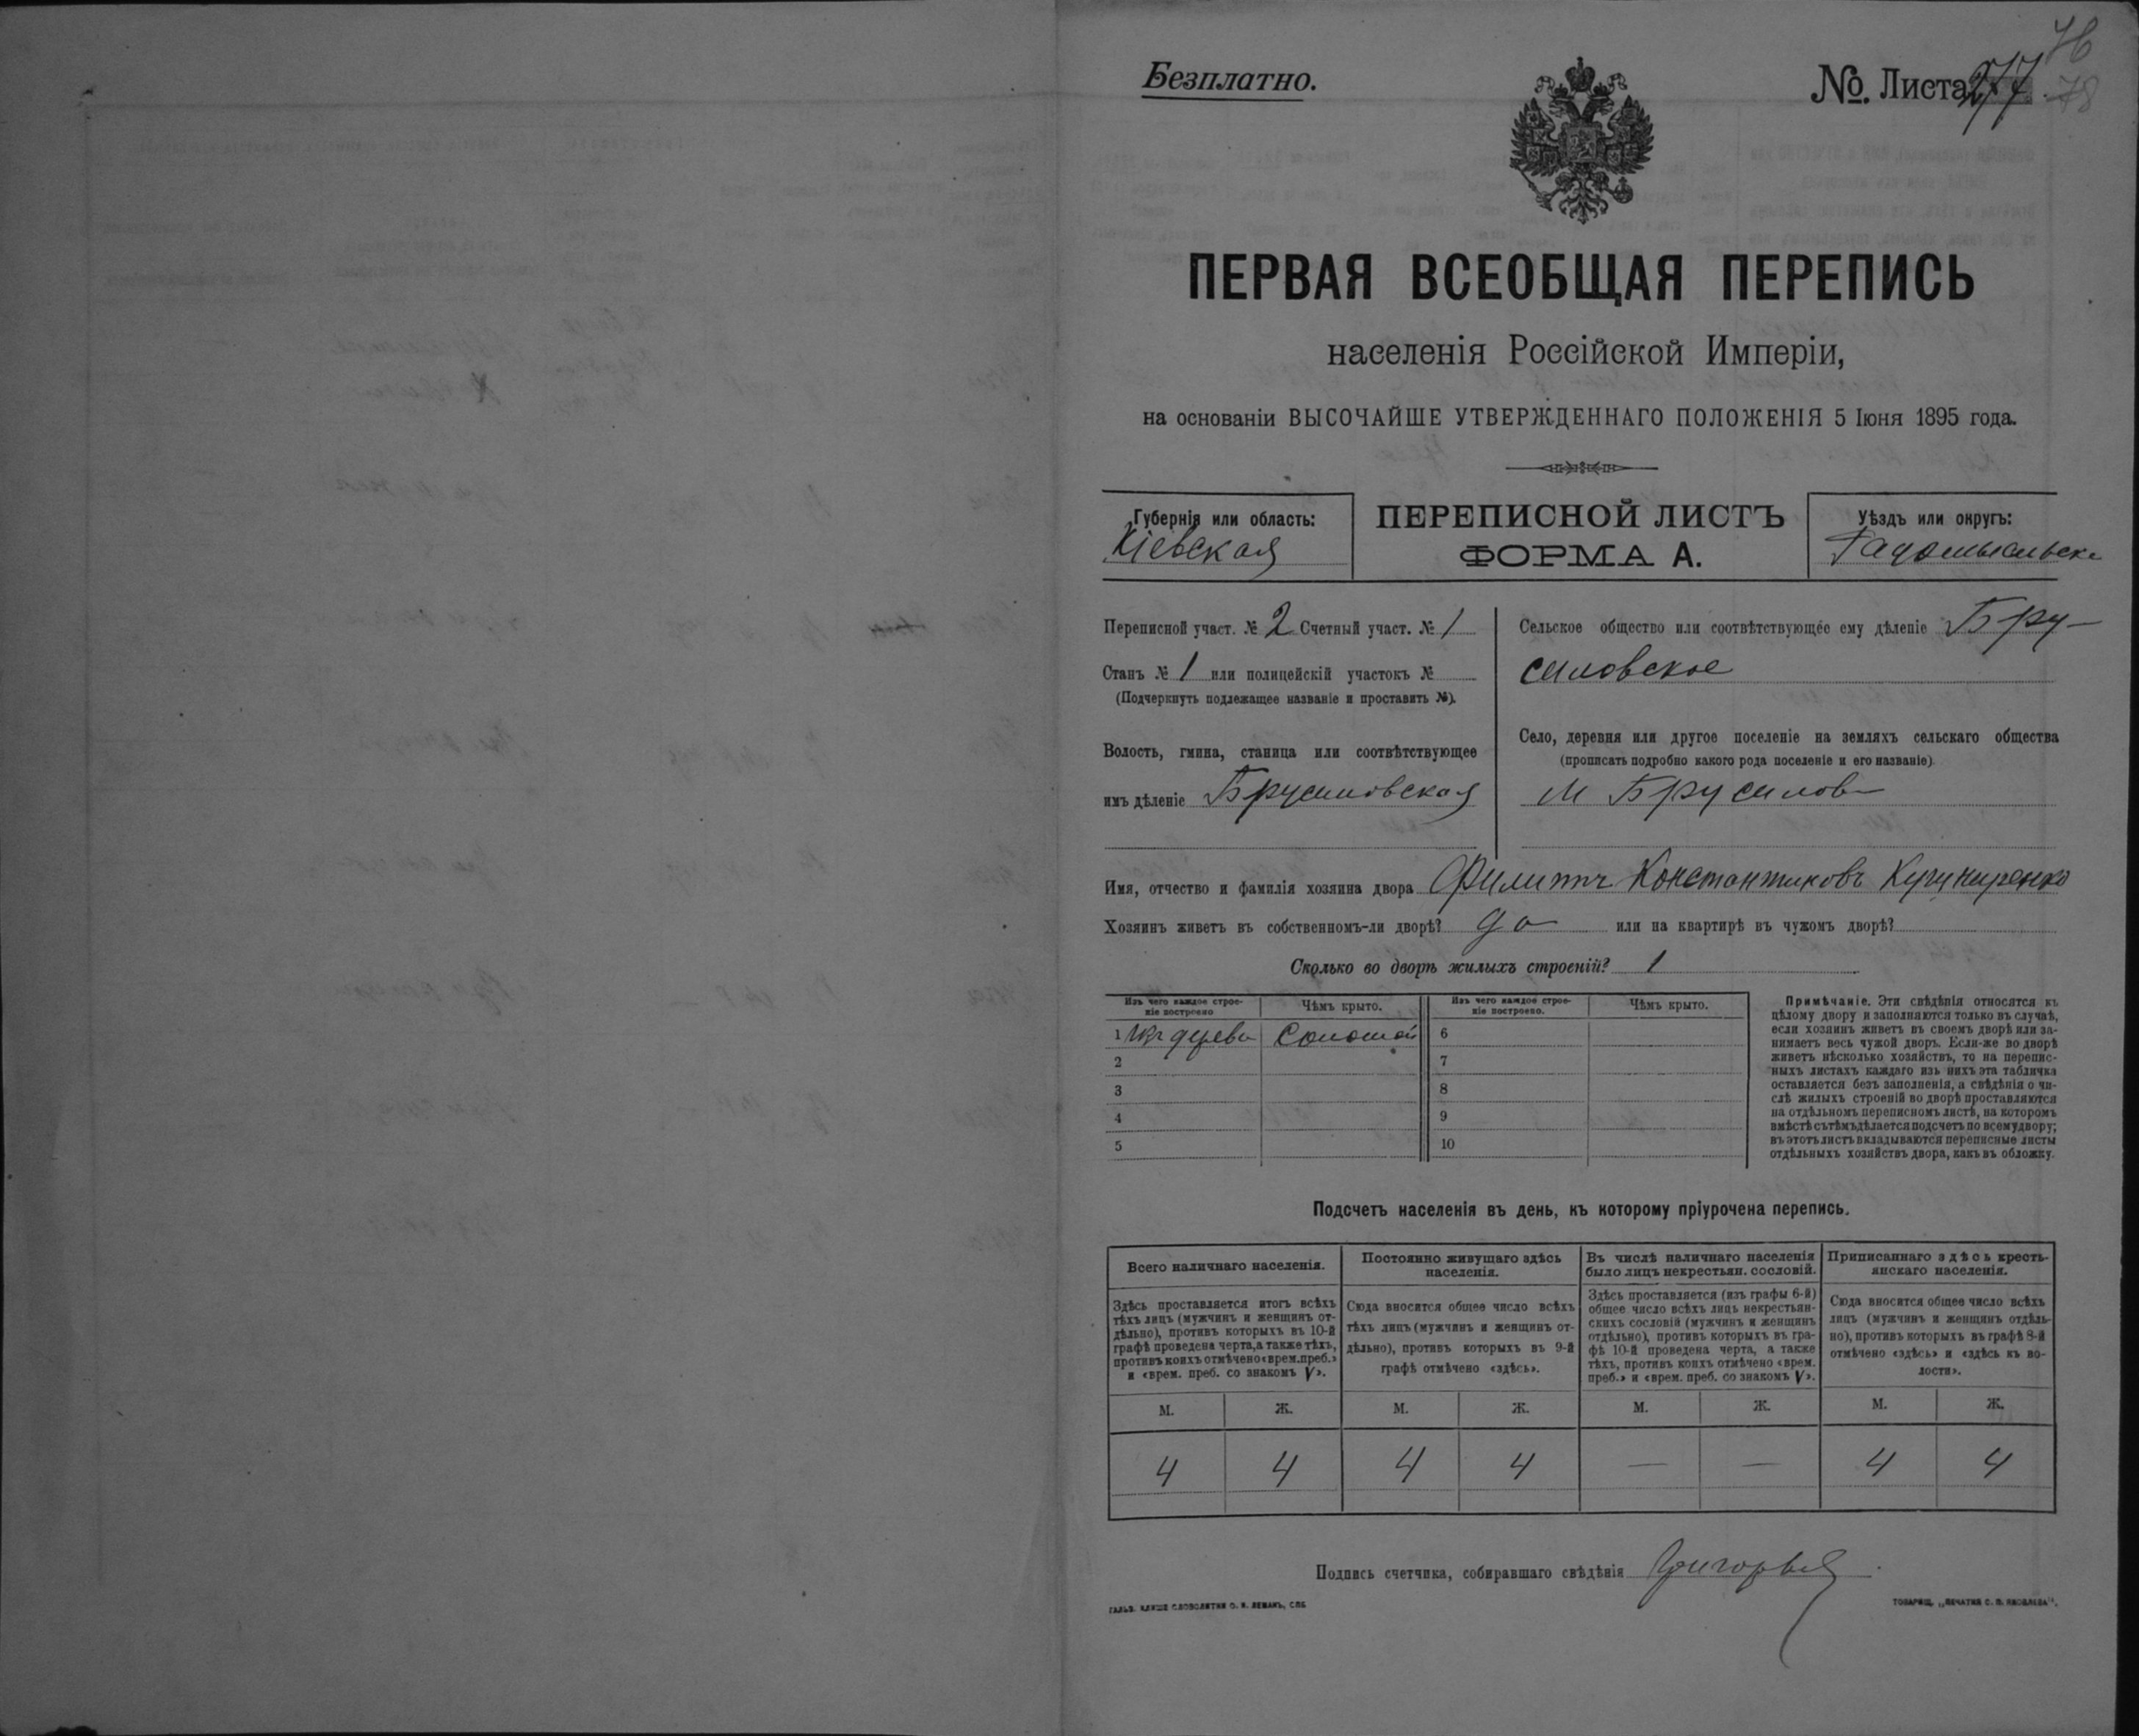 Безплатно.
№ Листа 277.
76
78
ПЕРВАЯ ВСЕОБЩАЯ ПЕРЕПИСЬ
населенія Россійской Имперіи,
на основаніи ВЫСОЧАЙШЕ УТВЕРЖДЕННАГО ПОЛОЖЕНІЯ 5 Іюня 1895 года.
Губернія или область:
Кіевская
ПЕРЕПИСНОЙ ЛИСТЪ
ФОРМА А.
Уѣздъ или округъ:
Радомысльск
Переписной участ. № 2 Счетный участ. № 1
Станъ № 1 или полицейскій участокъ №
(Подчеркнуть подлежащее названіе и проставить №).
Волость, гмина, станица или соотвѣтствующее
имъ дѣленіе Брусиловская
Сельское общество или соотвѣтствующее ему дѣленіе Бру-
силовское
Село, деревня или другое поселеніе на земляхъ сельскаго общества
(прописать подробно какого рода поселеніе и его названіе)
М Брусилов
Имя, отчество и фамилія хозяина двора Филиппъ Константиновъ
Хозяинъ живетъ въ собственномъ-ли дворѣ? да или на квартирѣ въ чужомъ дворѣ?
Сколько во дворѣ жилыхъ строеній? 1
Изъ чего каждое строе-
ніе построено
Чѣмъ крыто.
Изъ чего каждое строе-
ніе построено.
Чѣмъ крыто.
1 Изъ дерева Соломой 6
2 7
3 8
4 9
5 10
Примѣчаніе. Эти свѣдѣнія относятся къ
цѣлому двору и заполняются только въ случаѣ,
если хозяинъ живетъ въ своемъ дворѣ или за-
нимаетъ весь чужой дворъ. Если-же во дворѣ
живетъ нѣсколько хозяйствъ, то на перепис-
ныхъ листахъ каждаго изъ нихъ эта табличка
оставляется безъ заполненія, а свѣдѣнія о чи-
слѣ жилыхъ строеній во дворѣ проставляются
на отдѣльномъ переписномъ листѣ, на которомъ
вмѣстѣ съ тѣмъ дѣлается подсчетъ по всему двору;
въ этотъ листъ вкладываются переписные листы
отдѣльныхъ хозяйствъ двора, какъ въ обложку.
Подсчетъ населенія въ день, къ которому пріурочена перепись.
Всего наличнаго населенія.
Здѣсь проставляется итогъ всѣхъ
тѣхъ лицъ (мужчинъ и женщинъ от-
дѣльно), противъ которыхъ въ 10-й
графѣ проведена черта, а также тѣхъ,
противъ коихъ отмѣчено «врем. преб.»
и «врем. преб. со знакомъ V».
Постоянно живущаго здѣсь
населенія.
Сюда вносится общее число всѣхъ
тѣхъ лицъ (мужчинъ и женщинъ от-
дѣльно), противъ которыхъ въ 9-й
графѣ отмѣчено «здѣсь».
Въ числѣ наличнаго населенія
было лицъ некрестьян. сословій.
Здѣсь проставляется (изъ графы 6-й)
общее число всѣхъ лицъ некрестьян-
скихъ сословій (мужчинъ и женщинъ
отдѣльно), противъ которыхъ въ гра-
фѣ 10-й проведена черта, а также
тѣхъ, противъ коихъ отмѣчено «врем.
преб.» и «врем. преб. со знакомъ V».
Приписаннаго здѣсь кресть-
янскаго населенія.
Сюда вносится общее число всѣхъ
лицъ (мужчинъ и женщинъ отдѣль-
но), противъ которыхъ въ графѣ 8-й
отмѣчено «здѣсь» и «здѣсь къ во-
лости».
М. Ж. М. Ж. М. Ж. М. Ж.
4 4 4 4 — — 4 4
Подпись счетчика, собиравшаго свѣдѣнія
ГАЛЬВ. КЛИШЕ СЛОВОЛИТНИ О. И. ЛЕМАНЪ, СПБ.
ТОВАРИЩ. „ПЕЧАТНЯ С. П. ЯКОВЛЕВА“.